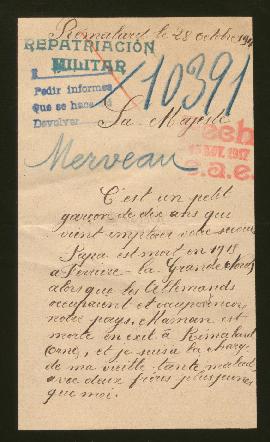 Rémalard le 28 octobre 1917
REPATRIACIÓN
MILITAR
10391
Pedir informes
Que se haca
Devolver
Sa Majesté
15 NOV. 1917
Merveau
C'est un petit
garçon de dix ans que
vient implorer votre secours
Papa est mort en 1915
à Ferrière-la-Grande (Nord)
alors que les Allemands
occupaient et occupent encore
notre pays. Maman est
morte en exil à Rémalard
(Orne), et je suis à la charge
de ma vieille tante malade
avec deux frères plus jeunes
que moi.